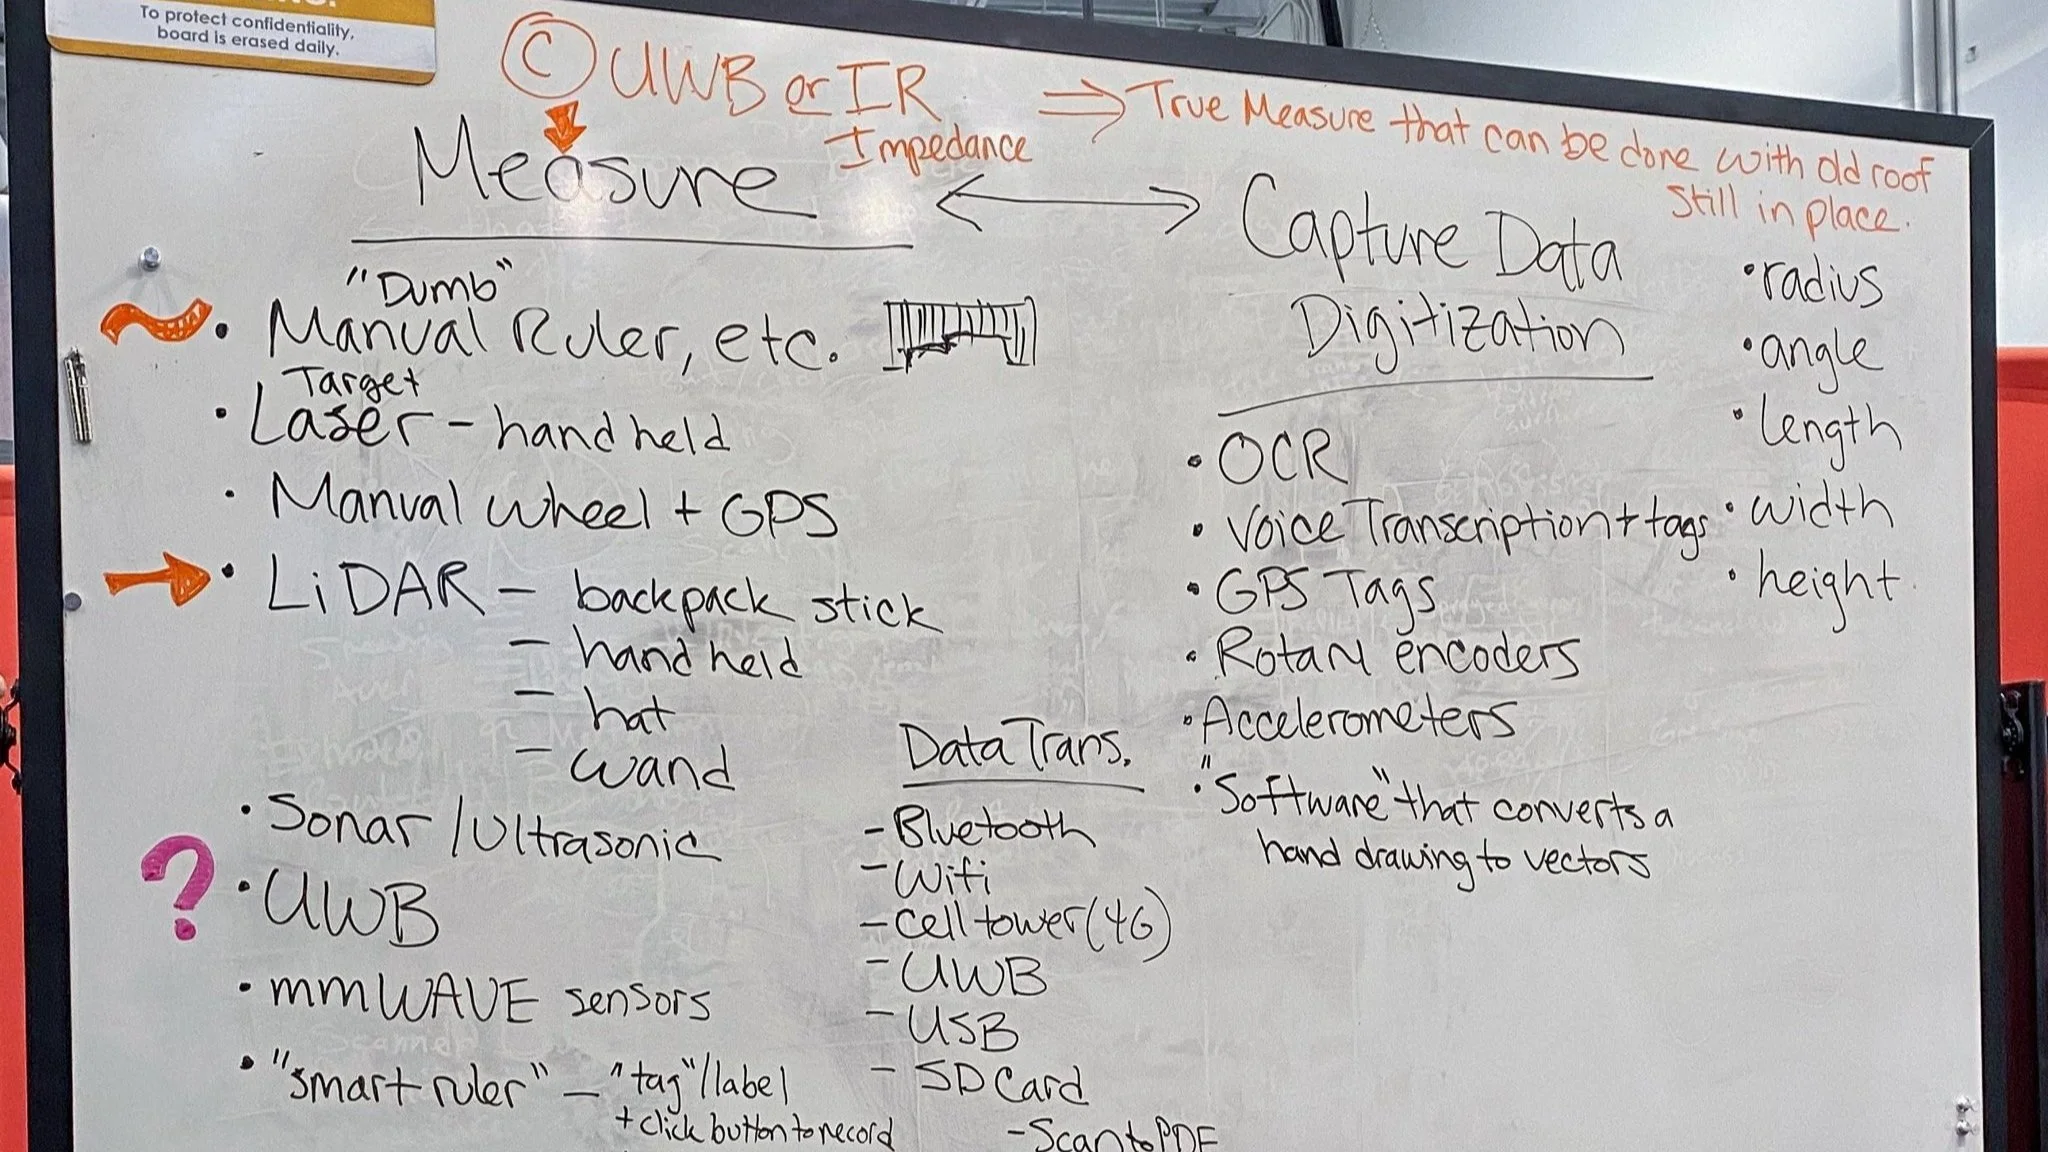 To protect confidentiality,
board is erased daily.
C UWB or IR
Impedance
⇒ True Measure that can be done with old roof
still in place.
Measure ↔ Capture Data
Digitization
"Dumb"
• Manual Ruler, etc.
Target
• Laser - handheld
• Manual wheel + GPS
• LiDAR - backpack stick
- handheld
- hat
- wand
• Sonar/Ultrasonic
? • UWB
• mmWAVE sensors
• "smart ruler" - "tag"/label
+ click button to record
Data Trans.
- Bluetooth
- Wifi
- Cell tower (4G)
- UWB
- USB
- SD Card
- Scan to PDF
• OCR
• Voice Transcription + tags
• GPS Tags
• Rotary encoders
• Accelerometers
• "Software" that converts a
hand drawing to vectors
• radius
• angle
• length
• width
• height